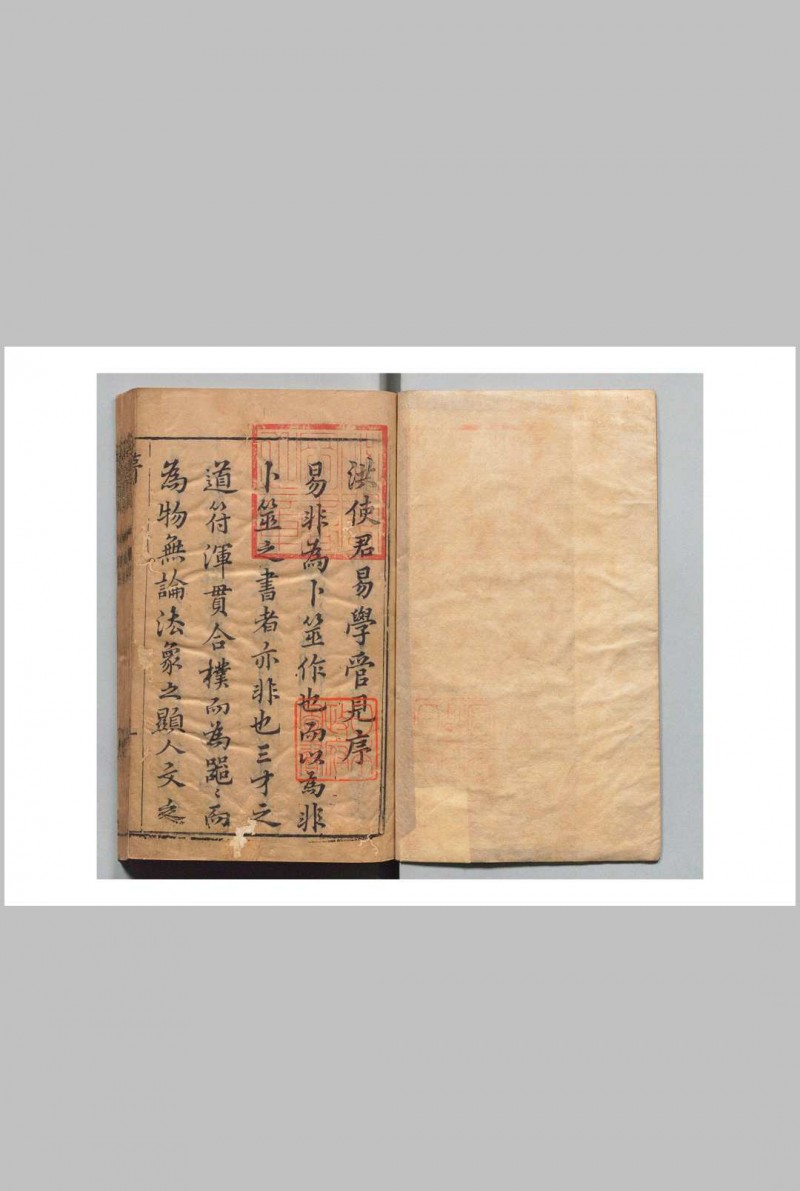 洪使君易學管見序
易非為卜筮作也而以為非
卜筮之書者亦非也三才之
道符渾貫合樸而為噐〻而
為物無論法象之顯人文之
序